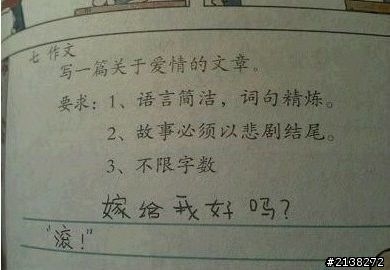 七 作文
写一篇关于爱情的文章。
要求：1、语言简洁，词句精炼。
2、故事必须以悲剧结尾。
3、不限字数
嫁给我好吗？
“滚！”
#2138272